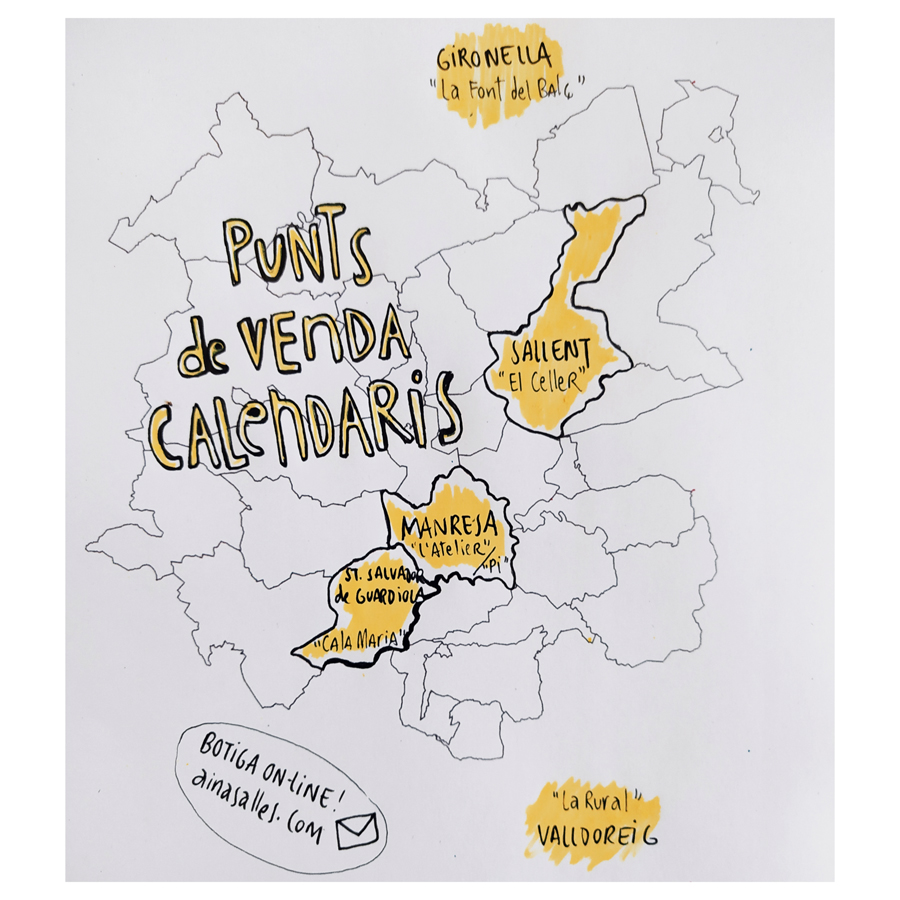 GIRONELLA
"La Font del Balç"
PUNTS
de VENDA
CALENDARIS
SALLENT
"El Celler"
MANRESA
"L'Atelier"/
"Pi"
ST. SALVADOR
de GUARDIOLA
"CALA MARIA"
BOTIGA ON-LINE!
ainasalles.com
"La Rural"
VALLDOREIG